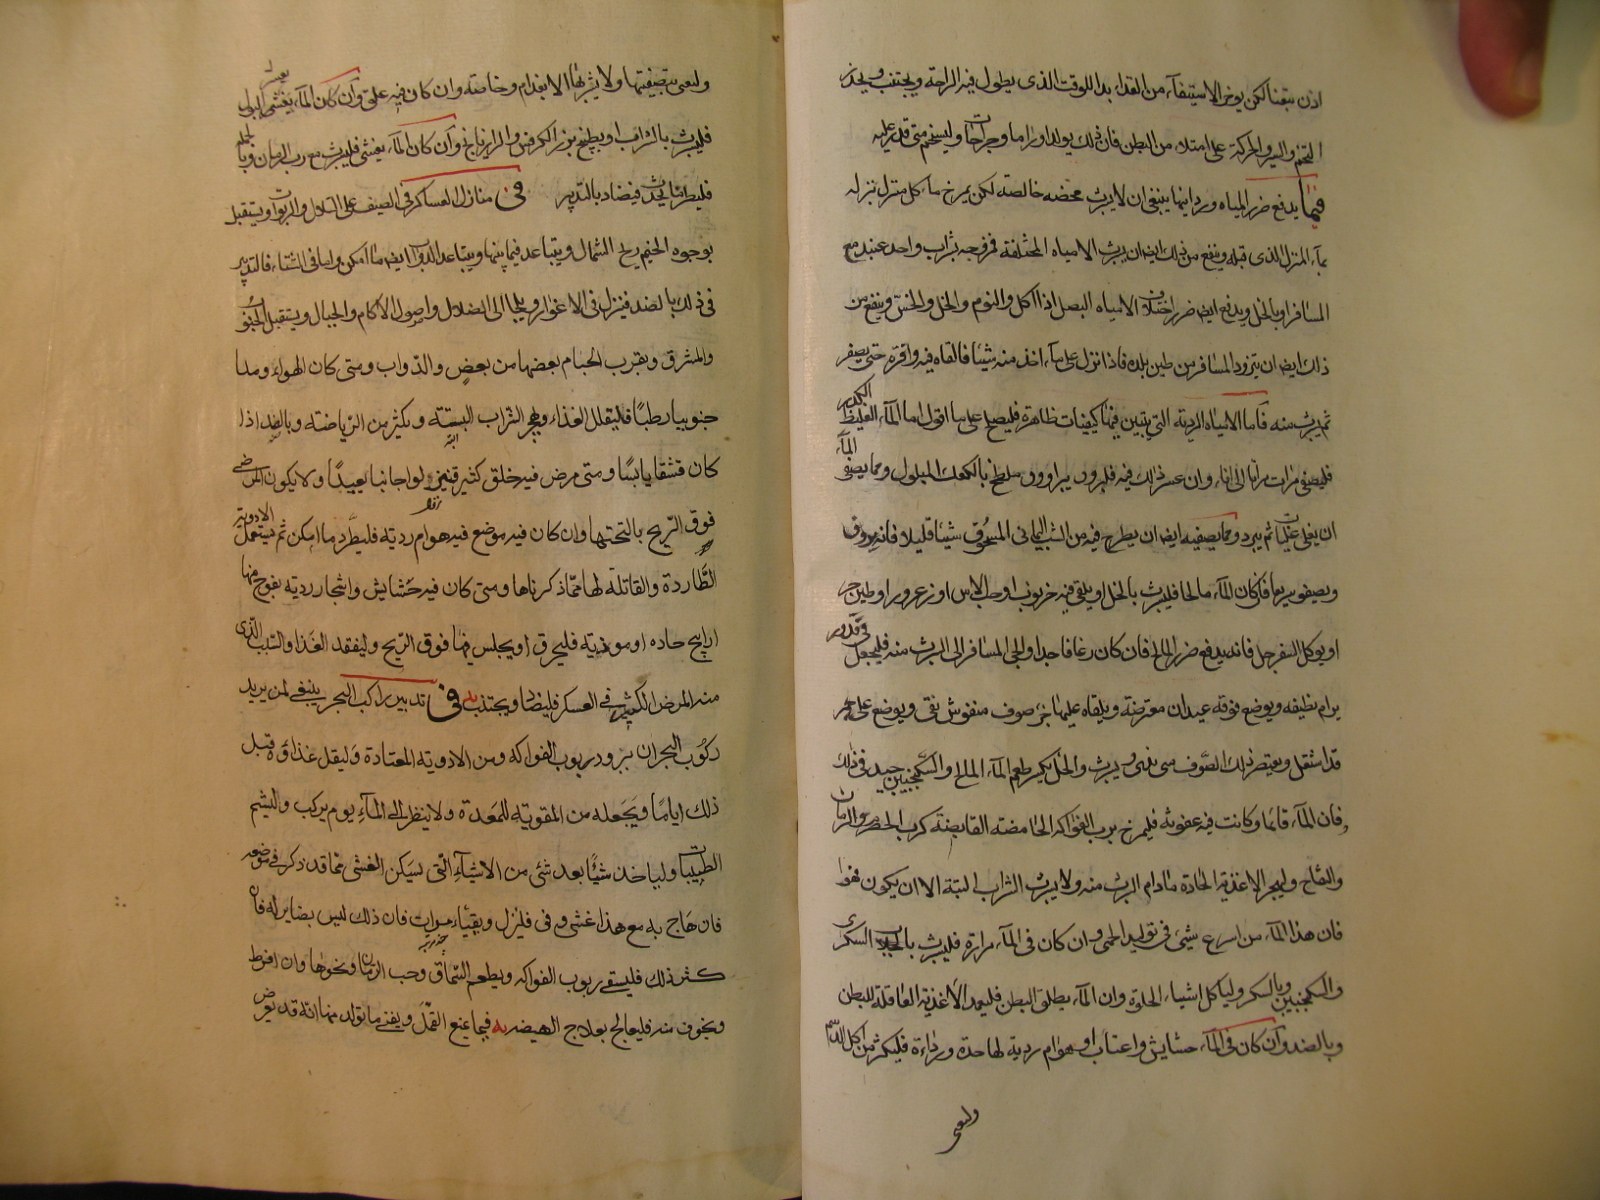 اذن بتقنا لكن يوخر الاستيفاء من الغذاء بدا للوقت الذى يطول فيه الراحة ويجتنب ويحذر
التخم والسير والحركة على امتلاء من البطن فان ذلك يولد اوراما وجراحات وليسخم متى قدر عليه
فيما يدفع ضرر المياه وردايتها ينبغى ان لا يشرب محضه خالصة لكن يمزج ماء كل منزل نزله
بماء المنزل الذى قبله وينفع من ذلك ايضا ان يشرب الامياه المختلفة فمزجه بشراب واحد عنيد مع
المسافر او بالخل ويدفع ايضا ضرر اختلاف الامياه البصل اذا اكل والثوم والخل والخس وينفع من
ذلك ايضا ان يتزود المسافر من طين بلده فاذا نزل على ماء اخذ منه شيئا فالقاه فيه واقره حتى يصفر
ثم يشرب منه فاما الامياه الردية التى يتبين فيها كيفيات ظاهرة فليصلح على ما اقول اما الماء الغليظ الكدر
فليصفى مرات من انا الى اناء وان عسر ذلك فيه فليروق براووق سلطح بالكعك المبلول ومما يصفى الماء
ان يغلى غليات ثم يبرد ومما يصفيه ايضا ان يطرح فيه من الشب اليمانى المسحوق شيئا قليلا فانه يروق
ويصفو سريعا فان كان الماء مالحا فليشرب بالخل او يلقى فيه خرنوب او حب الاس او زعرور او طين حر
او يوكل السفرجل فانه يدفع ضرر المالح فان كان زعاقا جدا والجى المسافر الى الشرب منه فليجعل فى قدور
برام نظيفه ويوضع فوقه عيدان معترضة ويلقاه عليها جز صوف منفوش نقى ويوضع على جمر
قد اشتعل ويعتصر ذلك الصوف متى ندى ويشرب والخل يكسر طعم الماء المالح والسكنجبين جيد فى ذلك
فان الماء قائما وكانت فيه عفونة فليمزج برب الفواكه الحامضه القابضة كرب الحصرم والرمان
والتفاح وليهجر الاغذية الحادة مادام الشرب منه ولا يشرب الشراب البتة الا ان يكون قهوا
فان هذا الماء من اسرع شيئ فى توليد الحمى وان كان فى الماء مرارة فليشرب بالجلاب السكرى
والسكنجبين وبالسكر ولياكل اشياء الحلوة وان الماء يطلق البطن فليعمد الاغذية العاقلة للبطن
وبالضد وان كان فى الماء حشايش واعشاب او هوام ردية لها حدة ورداءة فليكثر من اكل الدسم
وليعنى
وليعنى بتصفيتها ولا يشربها الا بفدام وخاصة وان كان فيه علق وان كان الماء يغشى البول يعسر
فليشرب بالشراب او يطبخ بزر الكرفس والرازيانج وان كان الماء يغشى فليشرب مع رب الرمان وبالجلم
فلينظر ما يحدث فيضاد بالتدبير فى منازل العساكر فى الصيف على التلال والربوات ويستقبل
بوجوه الخيم ريح الشمال ويتباعد فيما بينها ويتباعد الدواب ايضا ما امكن واما فى الشتاء فالتدبير
فى ذلك بالضد فينزل فى الاغوار ويلجا الى التلال واصول الاكام والجبال ويستقبل الجنوب
والمشرق ويقرب الخيام بعضها من بعض والدواب ومتى كان الهواء ومدا
جنوبيا رطبا فليقلل الغذاء ويهجر الشراب البتة ويكثر من الرياضة وبالضد اذا
كان قشفا يابسا ومتى مرض فيه خلق كثير فينزلوا جانبا بعيدا ولا يكون المرضى
فوق الريح بالتحتها وان كان فيه موضع فيه هوام ردية فليطرد ما امكن ثم تستعمل الادوية
الطاردة والقاتلة لها مما ذكرناها ومتى كان فيه حشايش واشجار ردية يفوح منها
ارايح حاده او موذية فليحرق او يجلس فيما فوق الريح وليفقد الغذا والسبب الذى
منه المرض الكثير فى العسكر فليضاد ويجتنب فى تدبير راكب البحر ينبغى لمن يريد
ركوب البحر ان يتزود ربوب الفواكه ومن الادوية المعتادة وليقل غذاؤه قبل
ذلك اياما ويجعله من المقوية للمعدة ولا ينظر الى الماء يوم يركب واليشم
الطيبات ولياخذ شيئا بعد شئ من الاشياء التى تسكن الغشى مما قد ذكر فى موضعه
فان هاج به مع هذا غشى وقى فلينزل ويقياء مرات فان ذلك ليس بضاير له فان
كثر ذلك فليسقى ربوب الفواكه ويطعم السماق وحب الرمان ونحوها وان افرط
وتخوف منه فليعالج بعلاج الهيضه فيما يمنع القمل ويفنى ما تولد منها انه قد يعرض